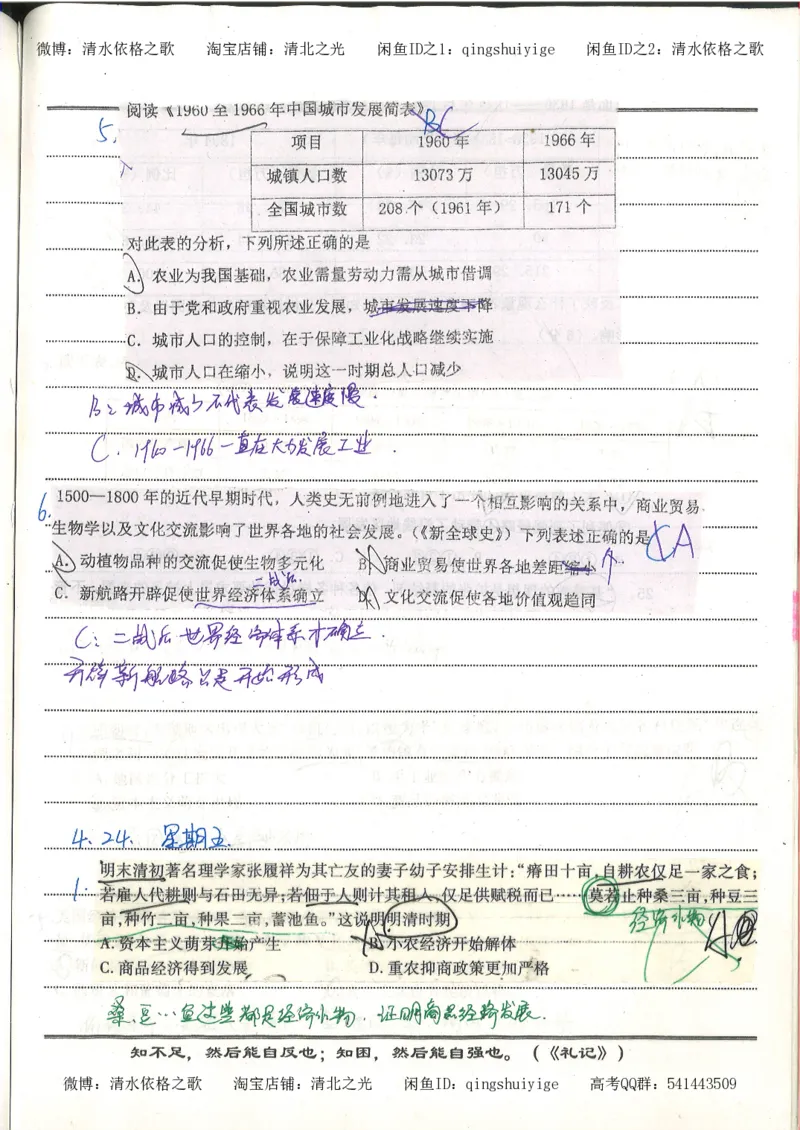 微博：清水依格之歌 淘宝店铺：清北之光 闲鱼ID之1：qingshuiyige 闲鱼ID之2：清水依格之歌
阅读《1960 至 1966 年中国城市发展简表》
BC
5.
项目 1960 年 1966 年
城镇人口数 13073 万 13045 万
全国城市数 208 个（1961 年） 171 个
对此表的分析，下列所述正确的是
A. 农业为我国基础，农业需量劳动力需从城市借调
B. 由于党和政府重视农业发展，城市发展速度下降
C. 城市人口的控制，在于保障工业化战略继续实施
D. 城市人口在缩小，说明这一时期总人口减少
B：城市减少不代表发展速度慢.
C. 1960-1966一直在大力发展工业.
6.
1500—1800 年的近代早期时代，人类史无前例地进入了一个相互影响的关系中，商业贸易、
生物学以及文化交流影响了世界各地的社会发展。（《新全球史》）下列表述正确的是
CA
A. 动植物品种的交流促使生物多元化 B. 商业贸易使世界各地差距缩小
二战后
C. 新航路开辟促使世界经济体系确立 D. 文化交流促使各地价值观趋同
C：二战后世界经济体系才确立.
开辟新航路只是开始形成
4.24. 星期五.
1.
明末清初著名理学家张履祥为其亡友的妻子幼子安排生计：“瘠田十亩，自耕农仅足一家之食；
若雇人代耕则与石田无异；若佃于人则计其租入，仅足供赋税而已……莫若止种桑三亩，种豆三
亩，种竹二亩，种果二亩，蓄池鱼。”这说明明清时期
经济作物
A. 资本主义萌芽开始产生 B. 小农经济开始解体
C. 商品经济得到发展 D. 重农抑商政策更加严格
桑、豆…鱼这些都是经济作物，证明商品经济发展.
知不足，然后能自反也；知困，然后能自强也。（《礼记》）
微博：清水依格之歌 淘宝店铺：清北之光 闲鱼ID：qingshuiyige 高考QQ群：541443509